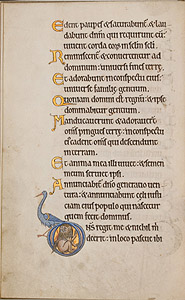 Edent pauperes & saturabuntur & lau
dabunt dnm qui requirunt eum
uiuent corda eorum in sclm scli
Reminiscentur & conuertentur ad
dominum uniuersi fines terre
Et adorabunt in conspectu eius
uniuerse familie gentium
Quoniam domini est regnum & ipse
dominabitur gentium
Manducauerunt & adorauerunt
omnes pingues terre in conspectu
eius cadent omnes qui descendunt
in terram
Et anima mea illi uiuet & semen
meum seruiet ipsi
Annunciabitur dno generatio uen
tura & annunciabunt celi iusticiam
eius populo qui nascetur
quem fecit dominus
Dns regit me & nichil m
deerit in loco pascue ibi